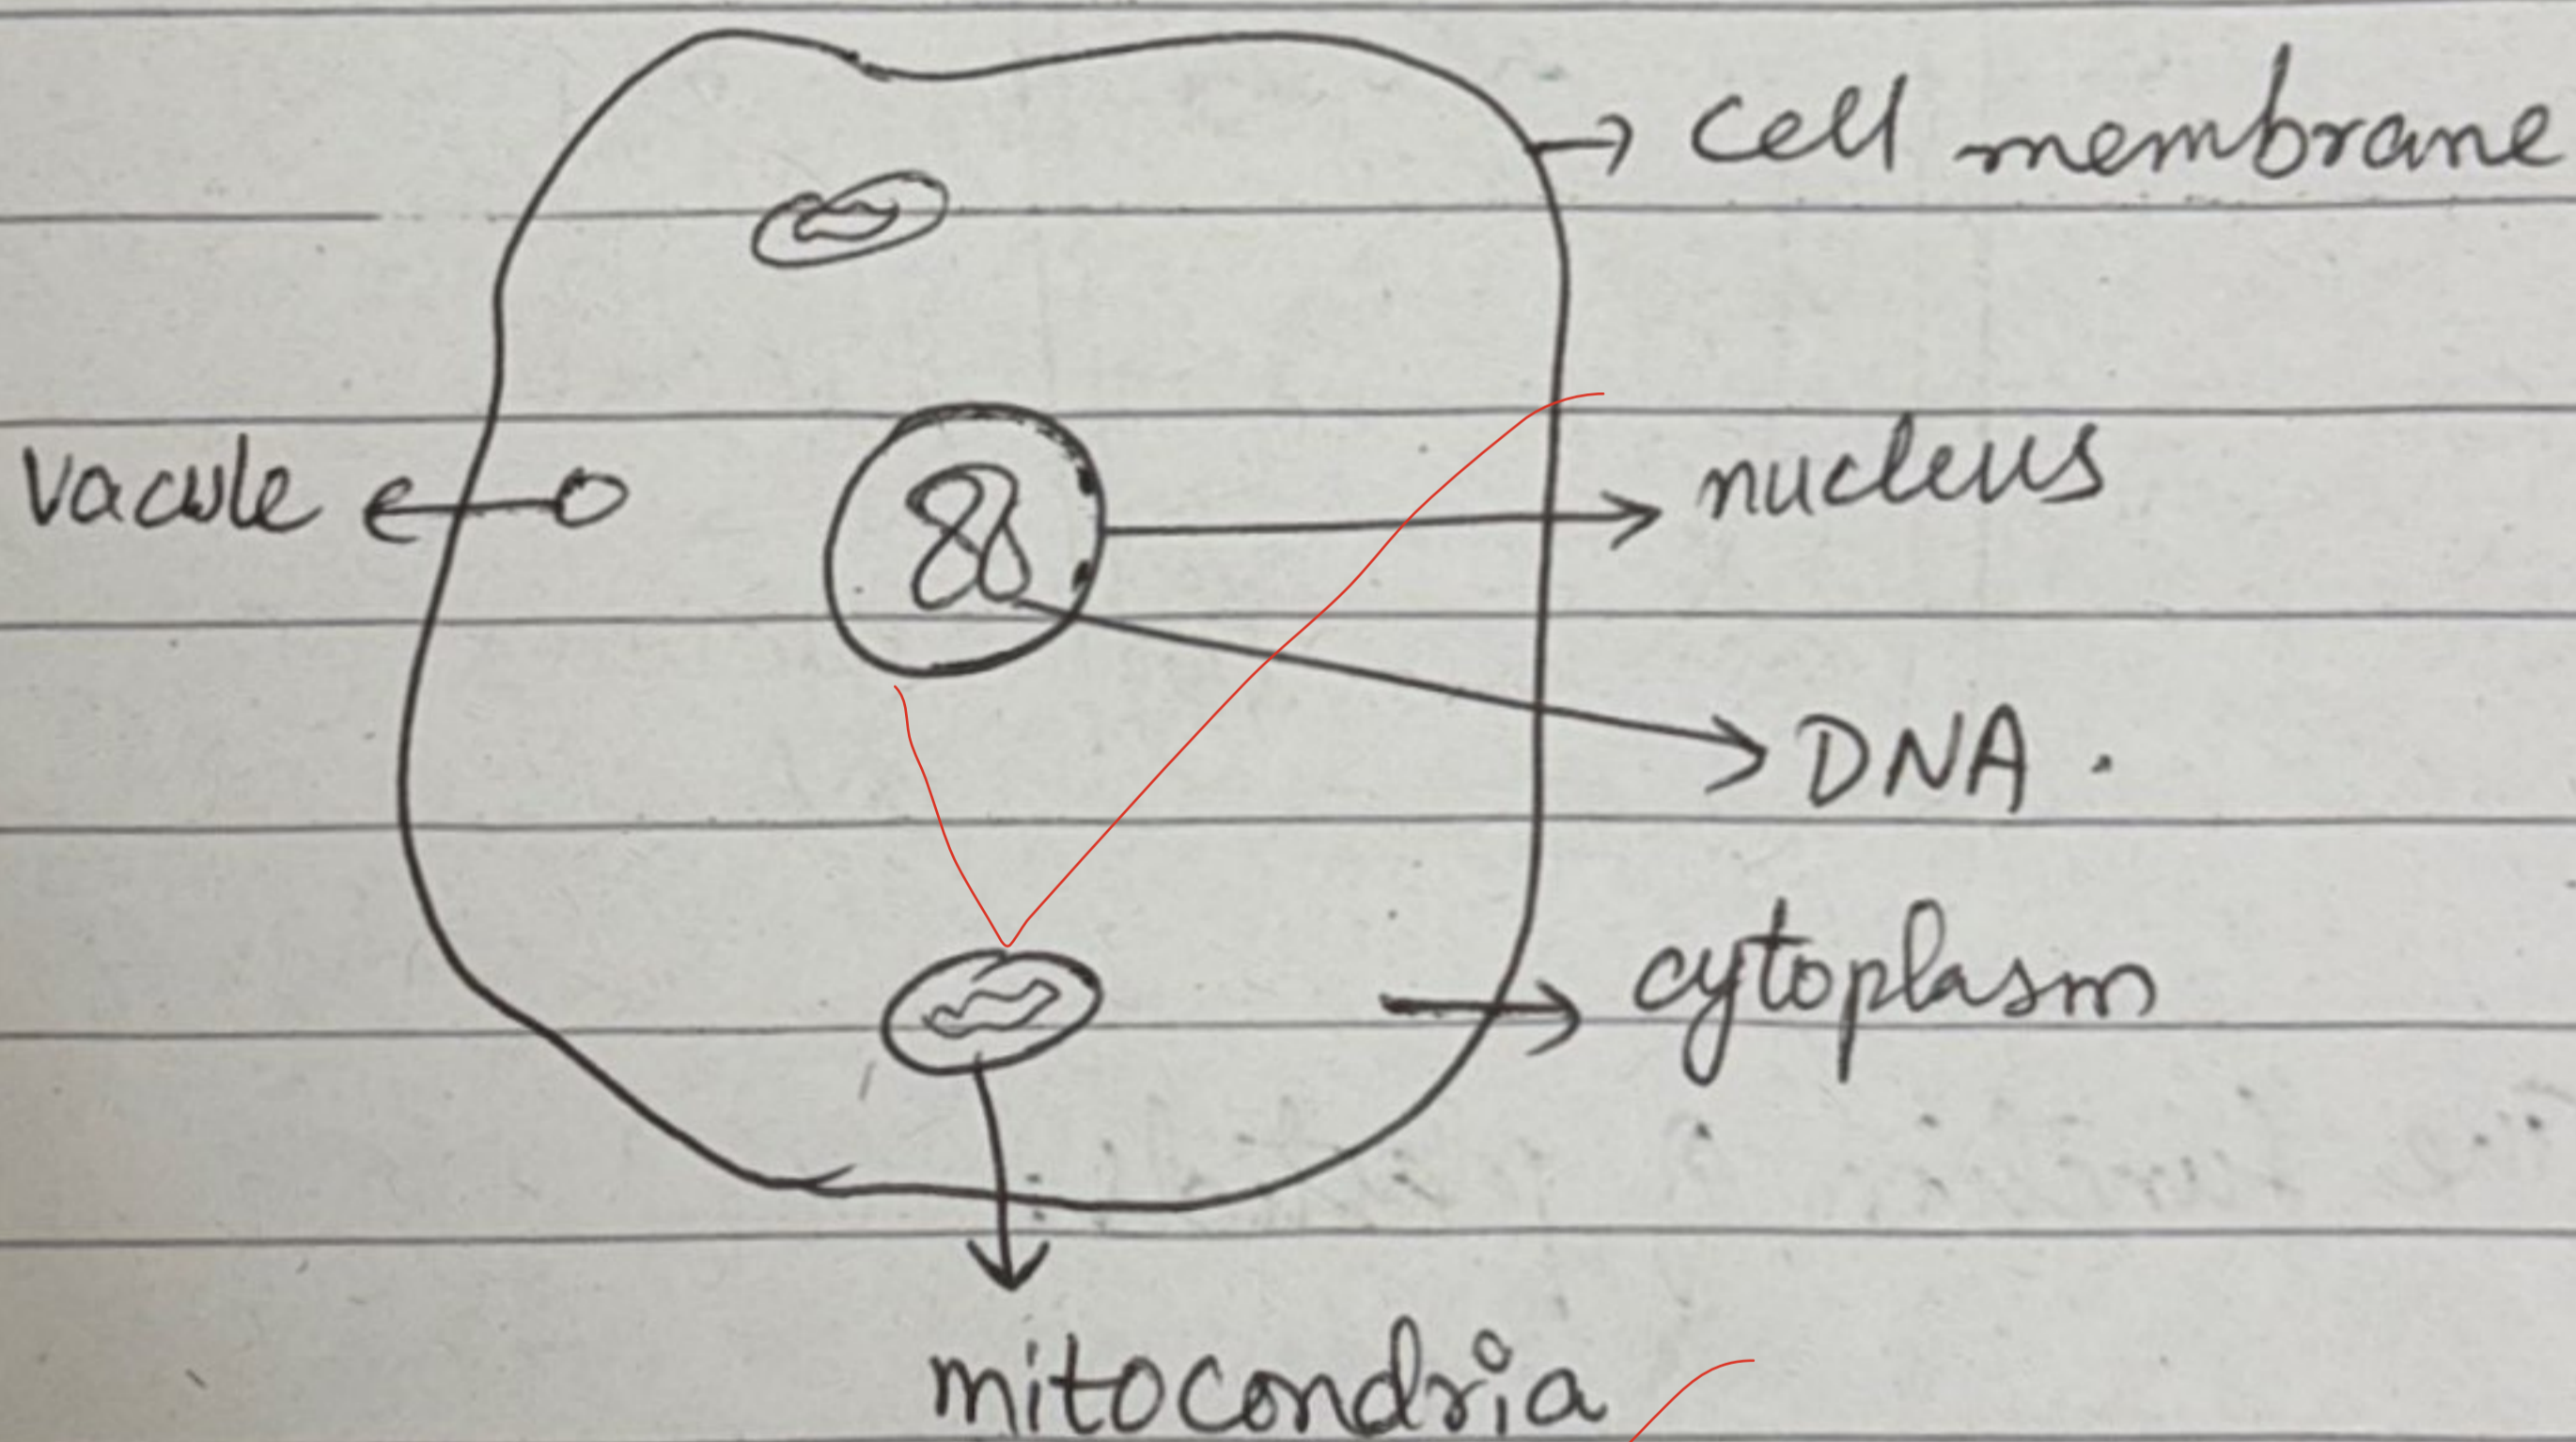 cell membrane
vacule
nucleus
DNA.
cytoplasm
mitocondria